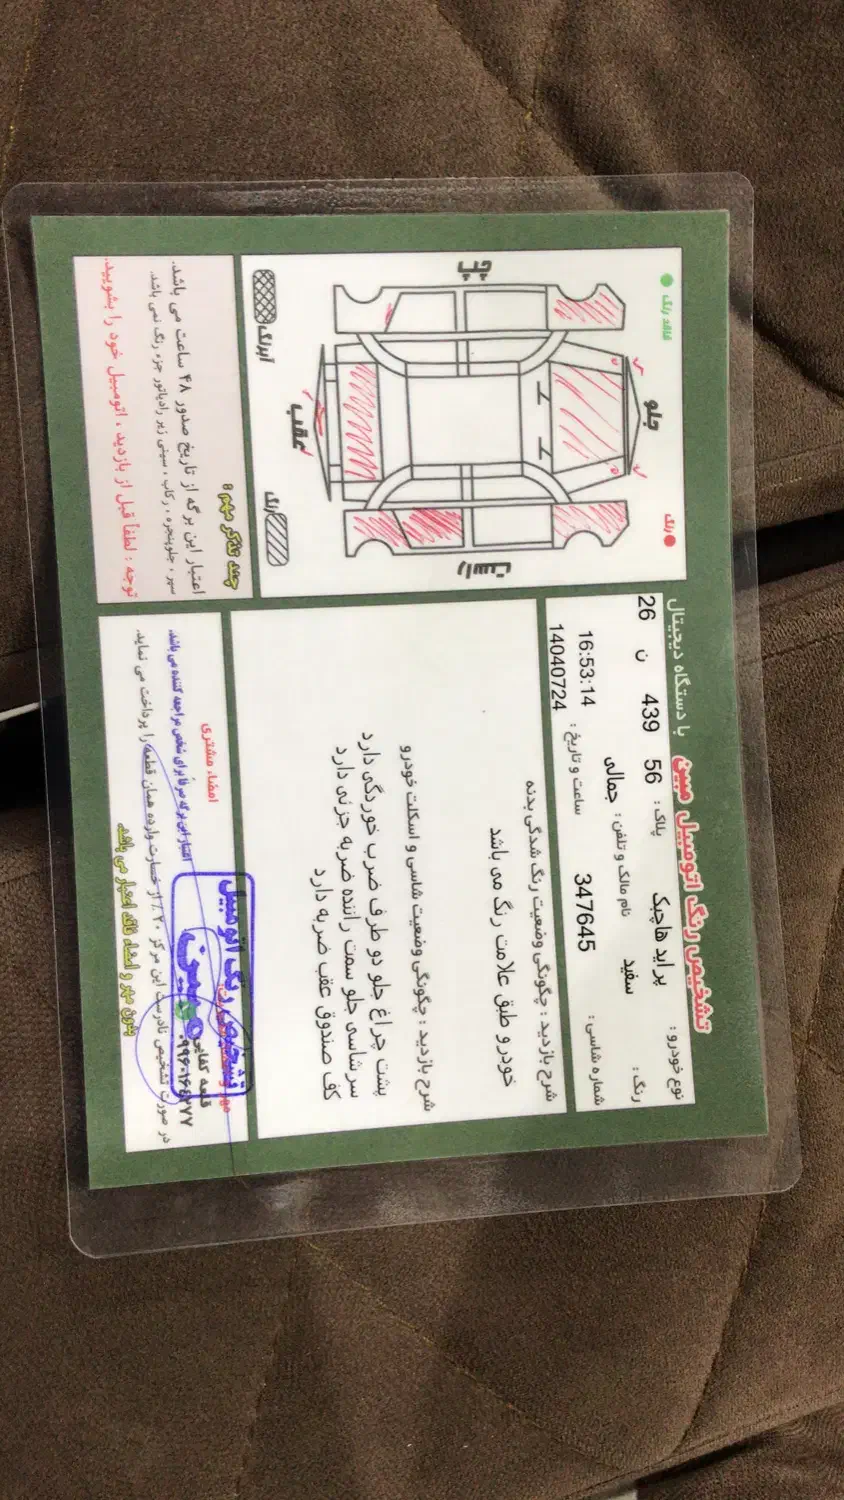 تشخیص رنگ اتومبیل مبین با دستگاه دیجیتال
نوع خودرو : پراید هاچبک پلاک : 56 439 ن 26
رنگ : سفید نام مالک و تلفن : جمالی
شماره شاسی : 347645 ساعت و تاریخ : 16:53:14
14040724
شرح بازدید : چگونگی وضعیت رنگ شدگی بدنه
خودرو طبق علامت رنگ می باشد
شرح بازدید : چگونگی وضعیت شاسی و اسکلت خودرو
پشت چراغ جلو دو طرف ضرب خوردگی دارد
سرشاسی جلو سمت راننده ضربه جزئی دارد
کف صندوق عقب ضربه دارد
فاقد رنگ
رنگ
جلو
چپ
راست
عقب
آبرنگ
رنگ
چند تذکر مهم :
اعتبار این برگه از تاریخ صدور ۴۸ ساعت می باشد.
سپر ، جلوپنجره ، رکاب ، سینی زیر رادیاتور جزء رنگ نمی باشد.
توجه : لطفاً قبل از بازدید ، اتومبیل خود را بشویید.
امضاء مشتری
تشخیص رنگ اتومبیل
مبین
قلعه کفایی
اعتبار این برگه صرفاً برای شخص مراجعه کننده می باشد.
در صورت تشخیص نادرست این مرکز ۲۰٪ از خسارت وارده همان قطعه را پرداخت می نماید.
بدون مهر و امضاء فاقد اعتبار می باشد.